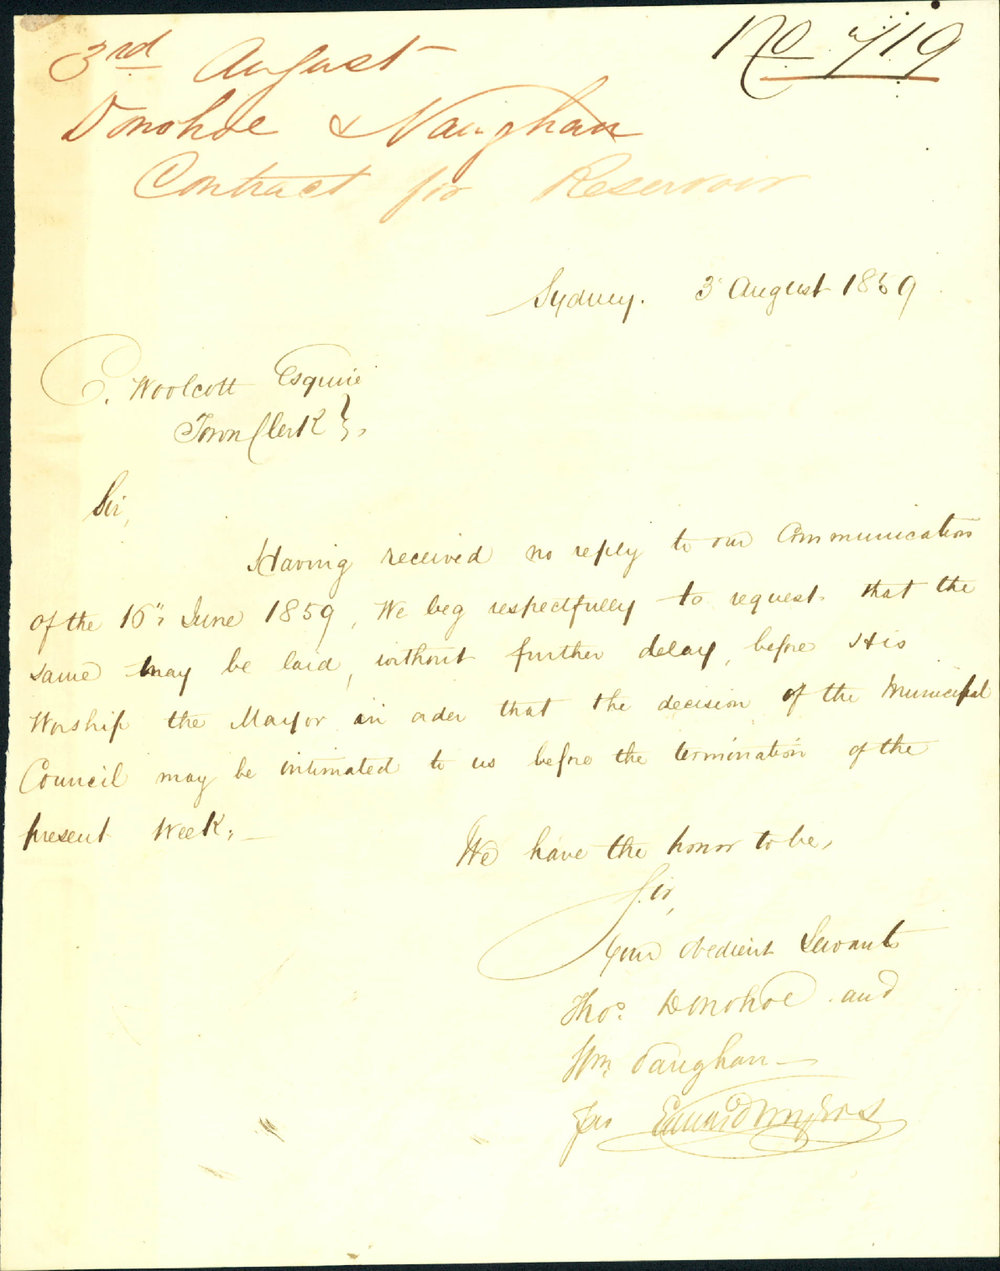 No 719
3rd August
Donohoe & Vaughan
Contract for Reservoir
Sydney. 3 August 1859
C. Woolcott Esquire
Town Clerk
Sir,
Having received no reply to our Communication
of the 16th June 1859, We beg respectfully to request that the
same may be laid, without further delay, before His
Worship the Mayor in order that the decision of the Municipal
Council may be intimated to us before the termination of the
present Week,
We have the honor to be,
Sir,
Your obedient Servants
Thos. Donohoe and
Wm. Vaughan